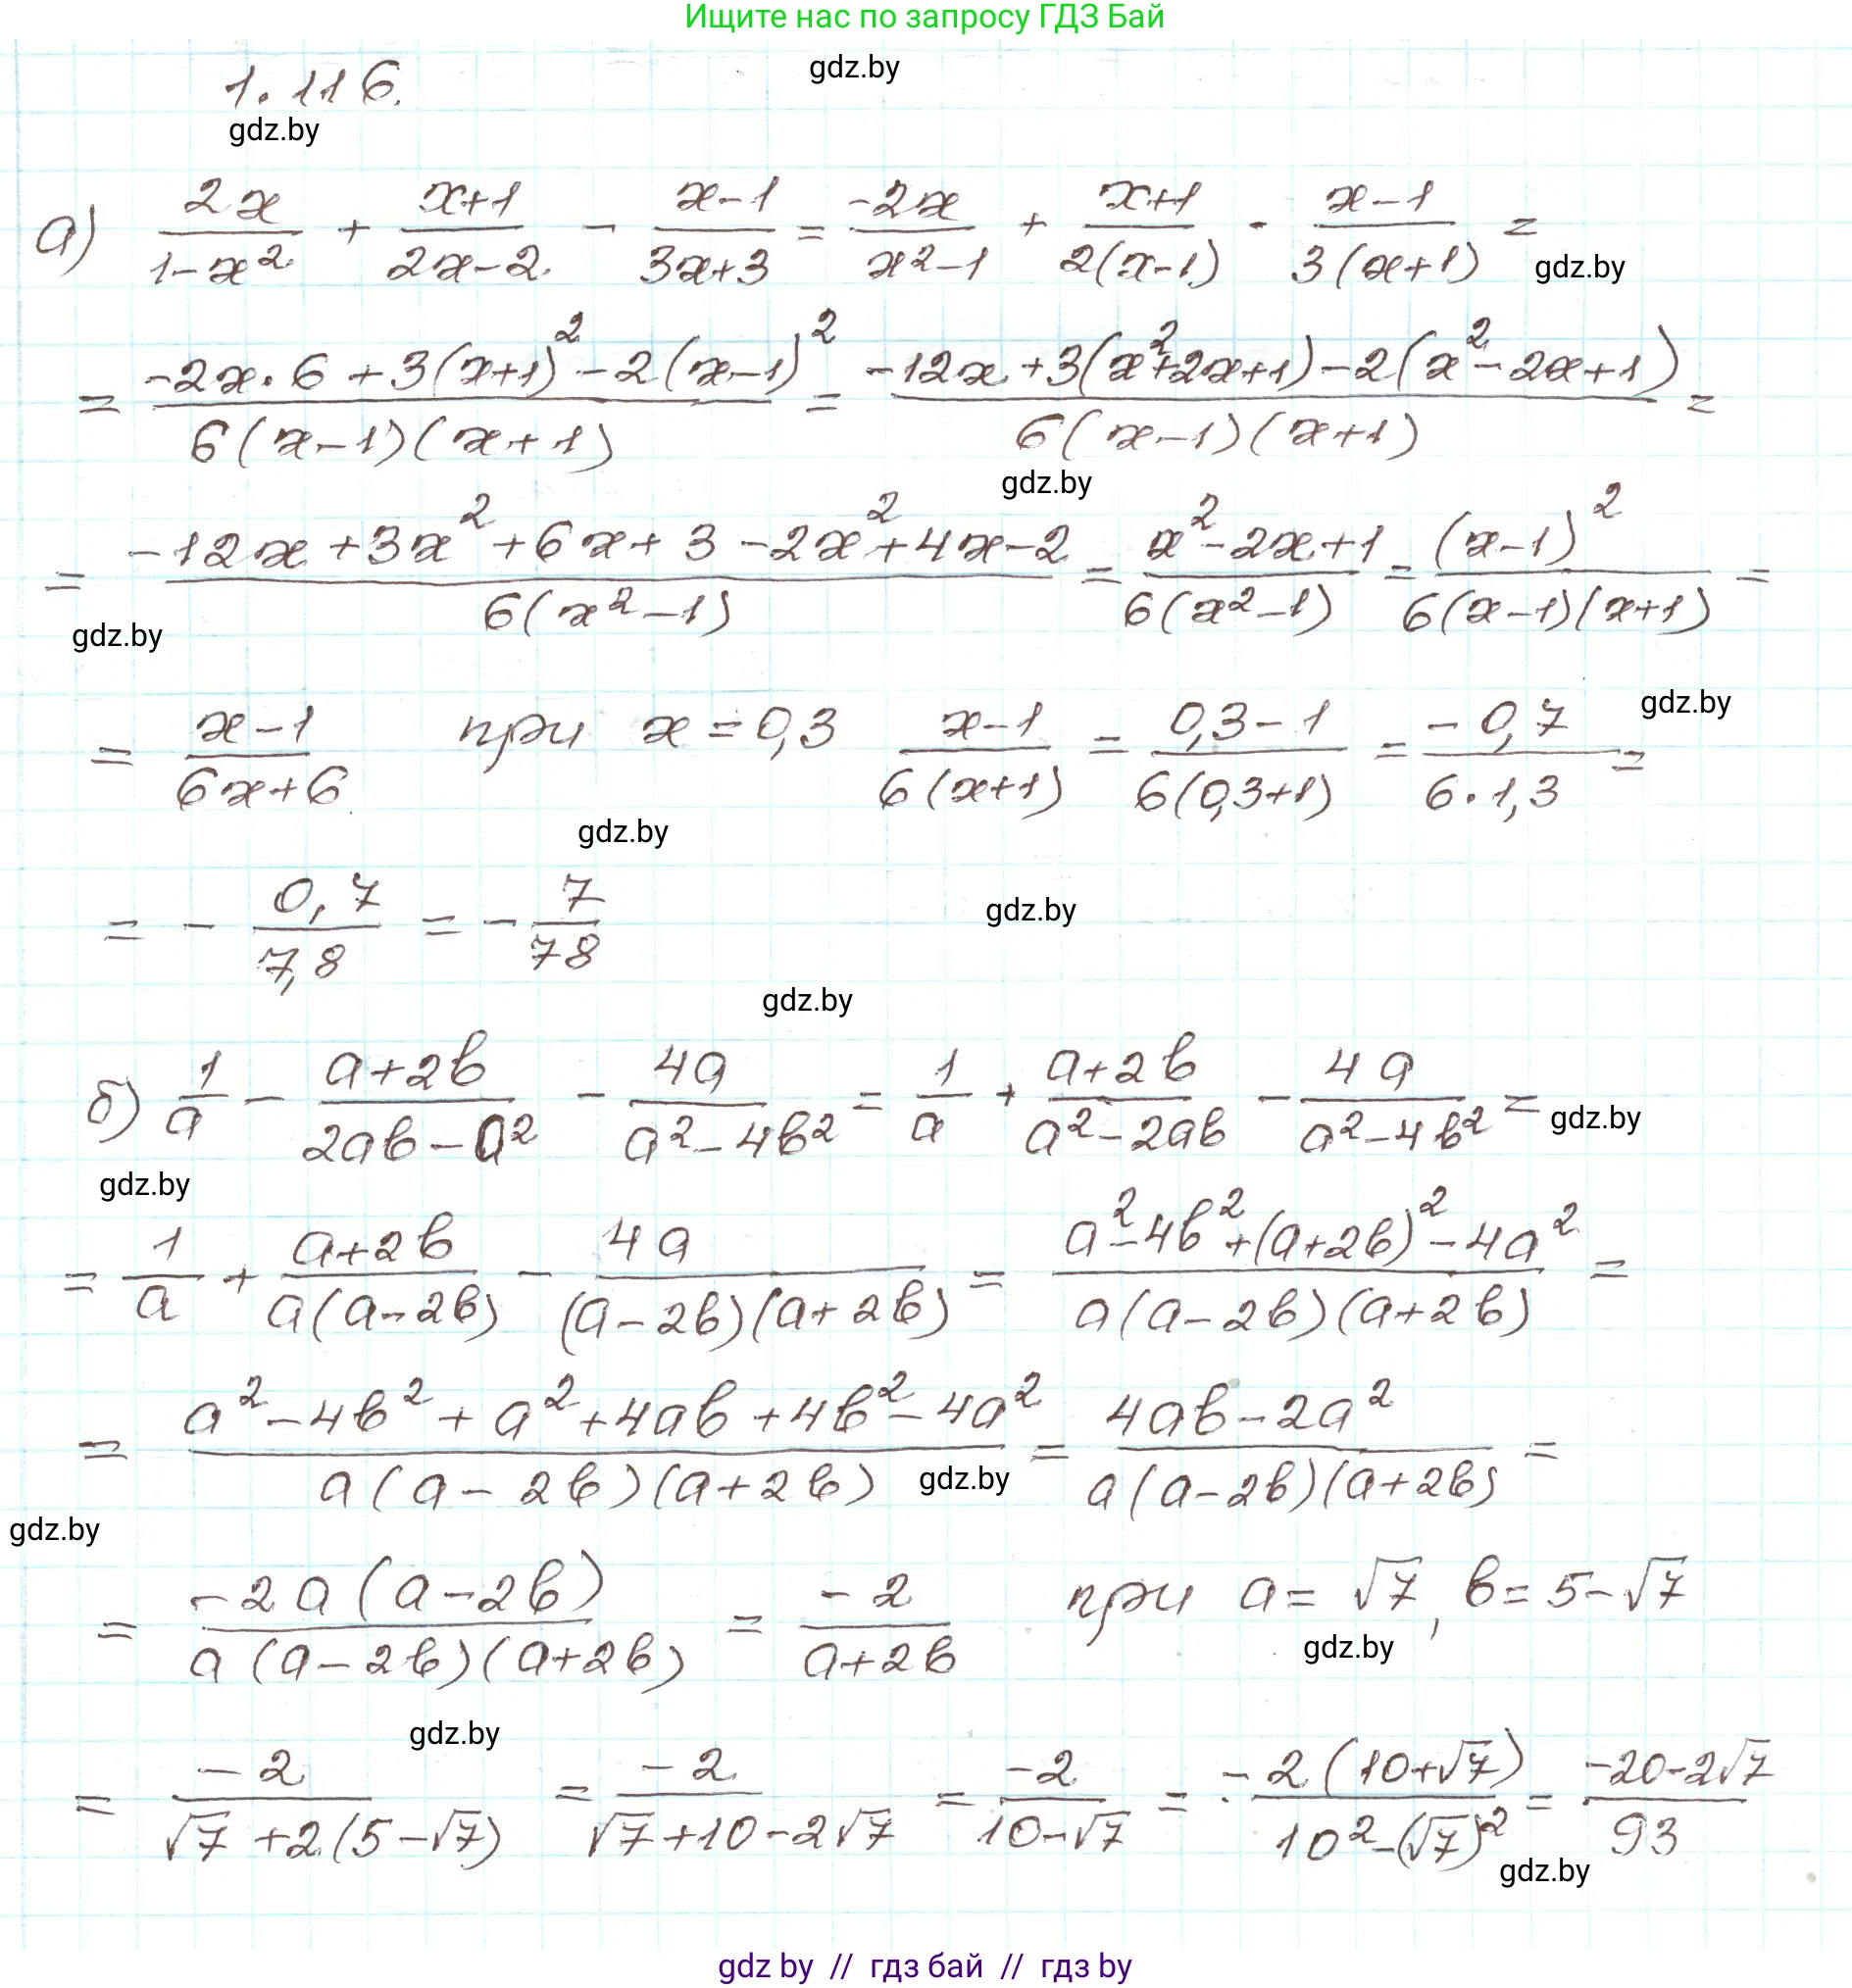 Ищите нас по запросу ГДЗ Бай
gdz.by
1.116.
gdz.by
а) 2x/(1-x²) + (x+1)/(2x-2) - (x-1)/(3x+3) = -2x/(x²-1) + (x+1)/(2(x-1)) - (x-1)/(3(x+1)) =
gdz.by
= (-2x·6+3(x+1)²-2(x-1)²)/(6(x-1)(x+1)) = (-12x+3(x²+2x+1)-2(x²-2x+1))/(6(x-1)(x+1)) =
gdz.by
= (-12x+3x²+6x+3-2x²+4x-2)/(6(x²-1)) = (x²-2x+1)/(6(x²-1)) = (x-1)²/(6(x-1)(x+1)) =
gdz.by
gdz.by
= (x-1)/(6x+6) при x=0,3 (x-1)/(6(x+1)) = (0,3-1)/(6(0,3+1)) = -0,7/(6·1,3) =
gdz.by
= - 0,7/7,8 = - 7/78
gdz.by
gdz.by
б) 1/a - (a+2b)/(2ab-a²) - 4a/(a²-4b²) = 1/a + (a+2b)/(a²-2ab) - 4a/(a²-4b²) =
gdz.by
gdz.by
= 1/a + (a+2b)/(a(a-2b)) - 4a/((a-2b)(a+2b)) = (a²-4b²+(a+2b)²-4a²)/(a(a-2b)(a+2b)) =
= (a²-4b²+a²+4ab+4b²-4a²)/(a(a-2b)(a+2b)) = (4ab-2a²)/(a(a-2b)(a+2b)) =
gdz.by
gdz.by
= -2a(a-2b)/(a(a-2b)(a+2b)) = -2/(a+2b) при a=√7, b=5-√7
gdz.by
gdz.by
= -2/(√7+2(5-√7)) = -2/(√7+10-2√7) = -2/(10-√7) = -2(10+√7)/(10²-(√7)²) = (-20-2√7)/93
gdz.by
gdz by // гдз бай // гдз by